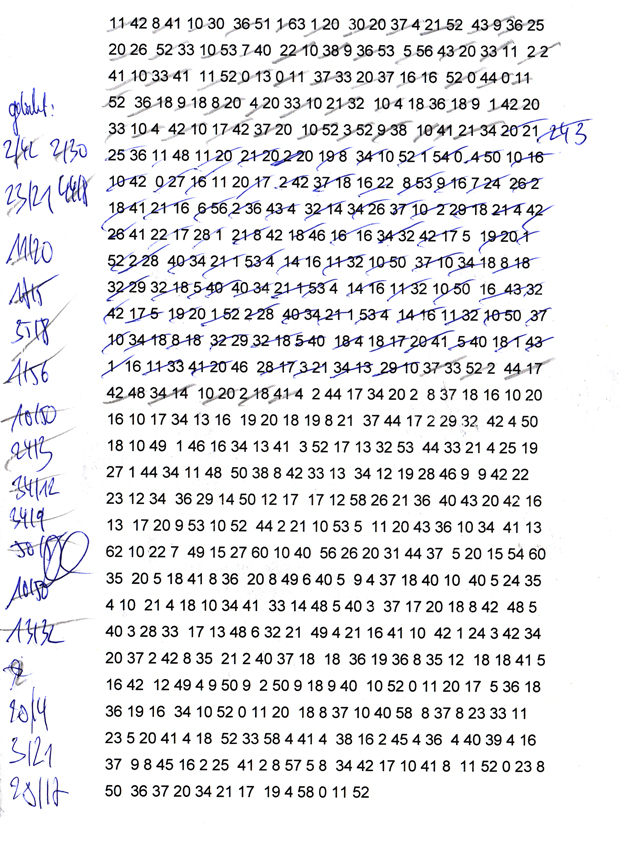 11 42 8 41 10 30 36 51 1 63 1 20 30 20 37 4 21 52 43 9 36 25
20 26 52 33 10 53 7 40 22 10 38 9 36 53 5 56 43 20 33 11 2 2
41 10 33 41 11 52 0 13 0 11 37 33 20 37 16 16 52 0 44 0 11
52 36 18 9 18 8 20 4 20 33 10 21 32 10 4 18 36 18 9 1 42 20
33 10 4 42 10 17 42 37 20 10 52 3 52 9 38 10 41 21 34 20 21 243
25 36 11 48 11 20 21 20 2 20 19 8 34 10 52 1 54 0 4 50 10 16
2/42 2/30
10 42 0 27 16 11 20 17 2 42 37 18 16 22 8 53 9 16 7 24 26 2
23/21
18 41 21 16 6 56 2 36 43 4 32 14 34 26 37 10 2 29 18 21 4 42
26 41 22 17 28 1 21 8 42 18 46 16 16 34 32 42 17 5 19 20 1
11/20
52 2 28 40 34 21 1 53 4 14 16 11 32 10 50 37 10 34 18 8 18
32 29 32 18 5 40 40 34 21 1 53 4 14 16 11 32 10 50 16 43 32
42 17 5 19 20 1 52 2 28 40 34 21 1 53 4 14 16 11 32 10 50 37
10 34 18 8 18 32 29 32 18 5 40 18 4 18 17 20 41 5 40 18 1 43
1 16 11 33 41 20 46 28 17 3 21 34 13 29 10 37 33 52 2 44 17
1/56
42 48 34 14 10 20 2 18 41 4 2 44 17 34 20 2 8 37 18 16 10 20
16 10 17 34 13 16 19 20 18 19 8 21 37 44 17 2 29 32 42 4 50
10/50
18 10 49 1 46 16 34 13 41 3 52 17 13 32 53 44 33 21 4 25 19
24/3
27 1 44 34 11 48 50 38 8 42 33 13 34 12 19 28 46 9 9 42 22
34/12
23 12 34 36 29 14 50 12 17 17 12 58 26 21 36 40 43 20 42 16
34/9
13 17 20 9 53 10 52 44 2 21 10 53 5 11 20 43 36 10 34 41 13
62 10 22 7 49 15 27 60 10 40 56 26 20 31 44 37 5 20 15 54 60
35 20 5 18 41 8 36 20 8 49 6 40 5 9 4 37 18 40 10 40 5 24 35
10/50
4 10 21 4 18 10 34 41 33 14 48 5 40 3 37 17 20 18 8 42 48 5
40 3 28 33 17 13 48 6 32 21 49 4 21 16 41 10 42 1 24 3 42 34
13/32
20 37 2 42 8 35 21 2 40 37 18 18 36 19 36 8 35 12 18 18 41 5
16 42 12 49 4 9 50 9 2 50 9 18 9 40 10 52 0 11 20 17 5 36 18
36 19 16 34 10 52 0 11 20 18 8 37 10 40 58 8 37 8 23 33 11
20/4
23 5 20 41 4 18 52 33 58 4 41 4 38 16 2 45 4 36 4 40 39 4 16
3/21
37 9 8 45 16 2 25 41 2 8 57 5 8 34 42 17 10 41 8 11 52 0 23 8
50 36 37 20 34 21 17 19 4 58 0 11 52
28/17